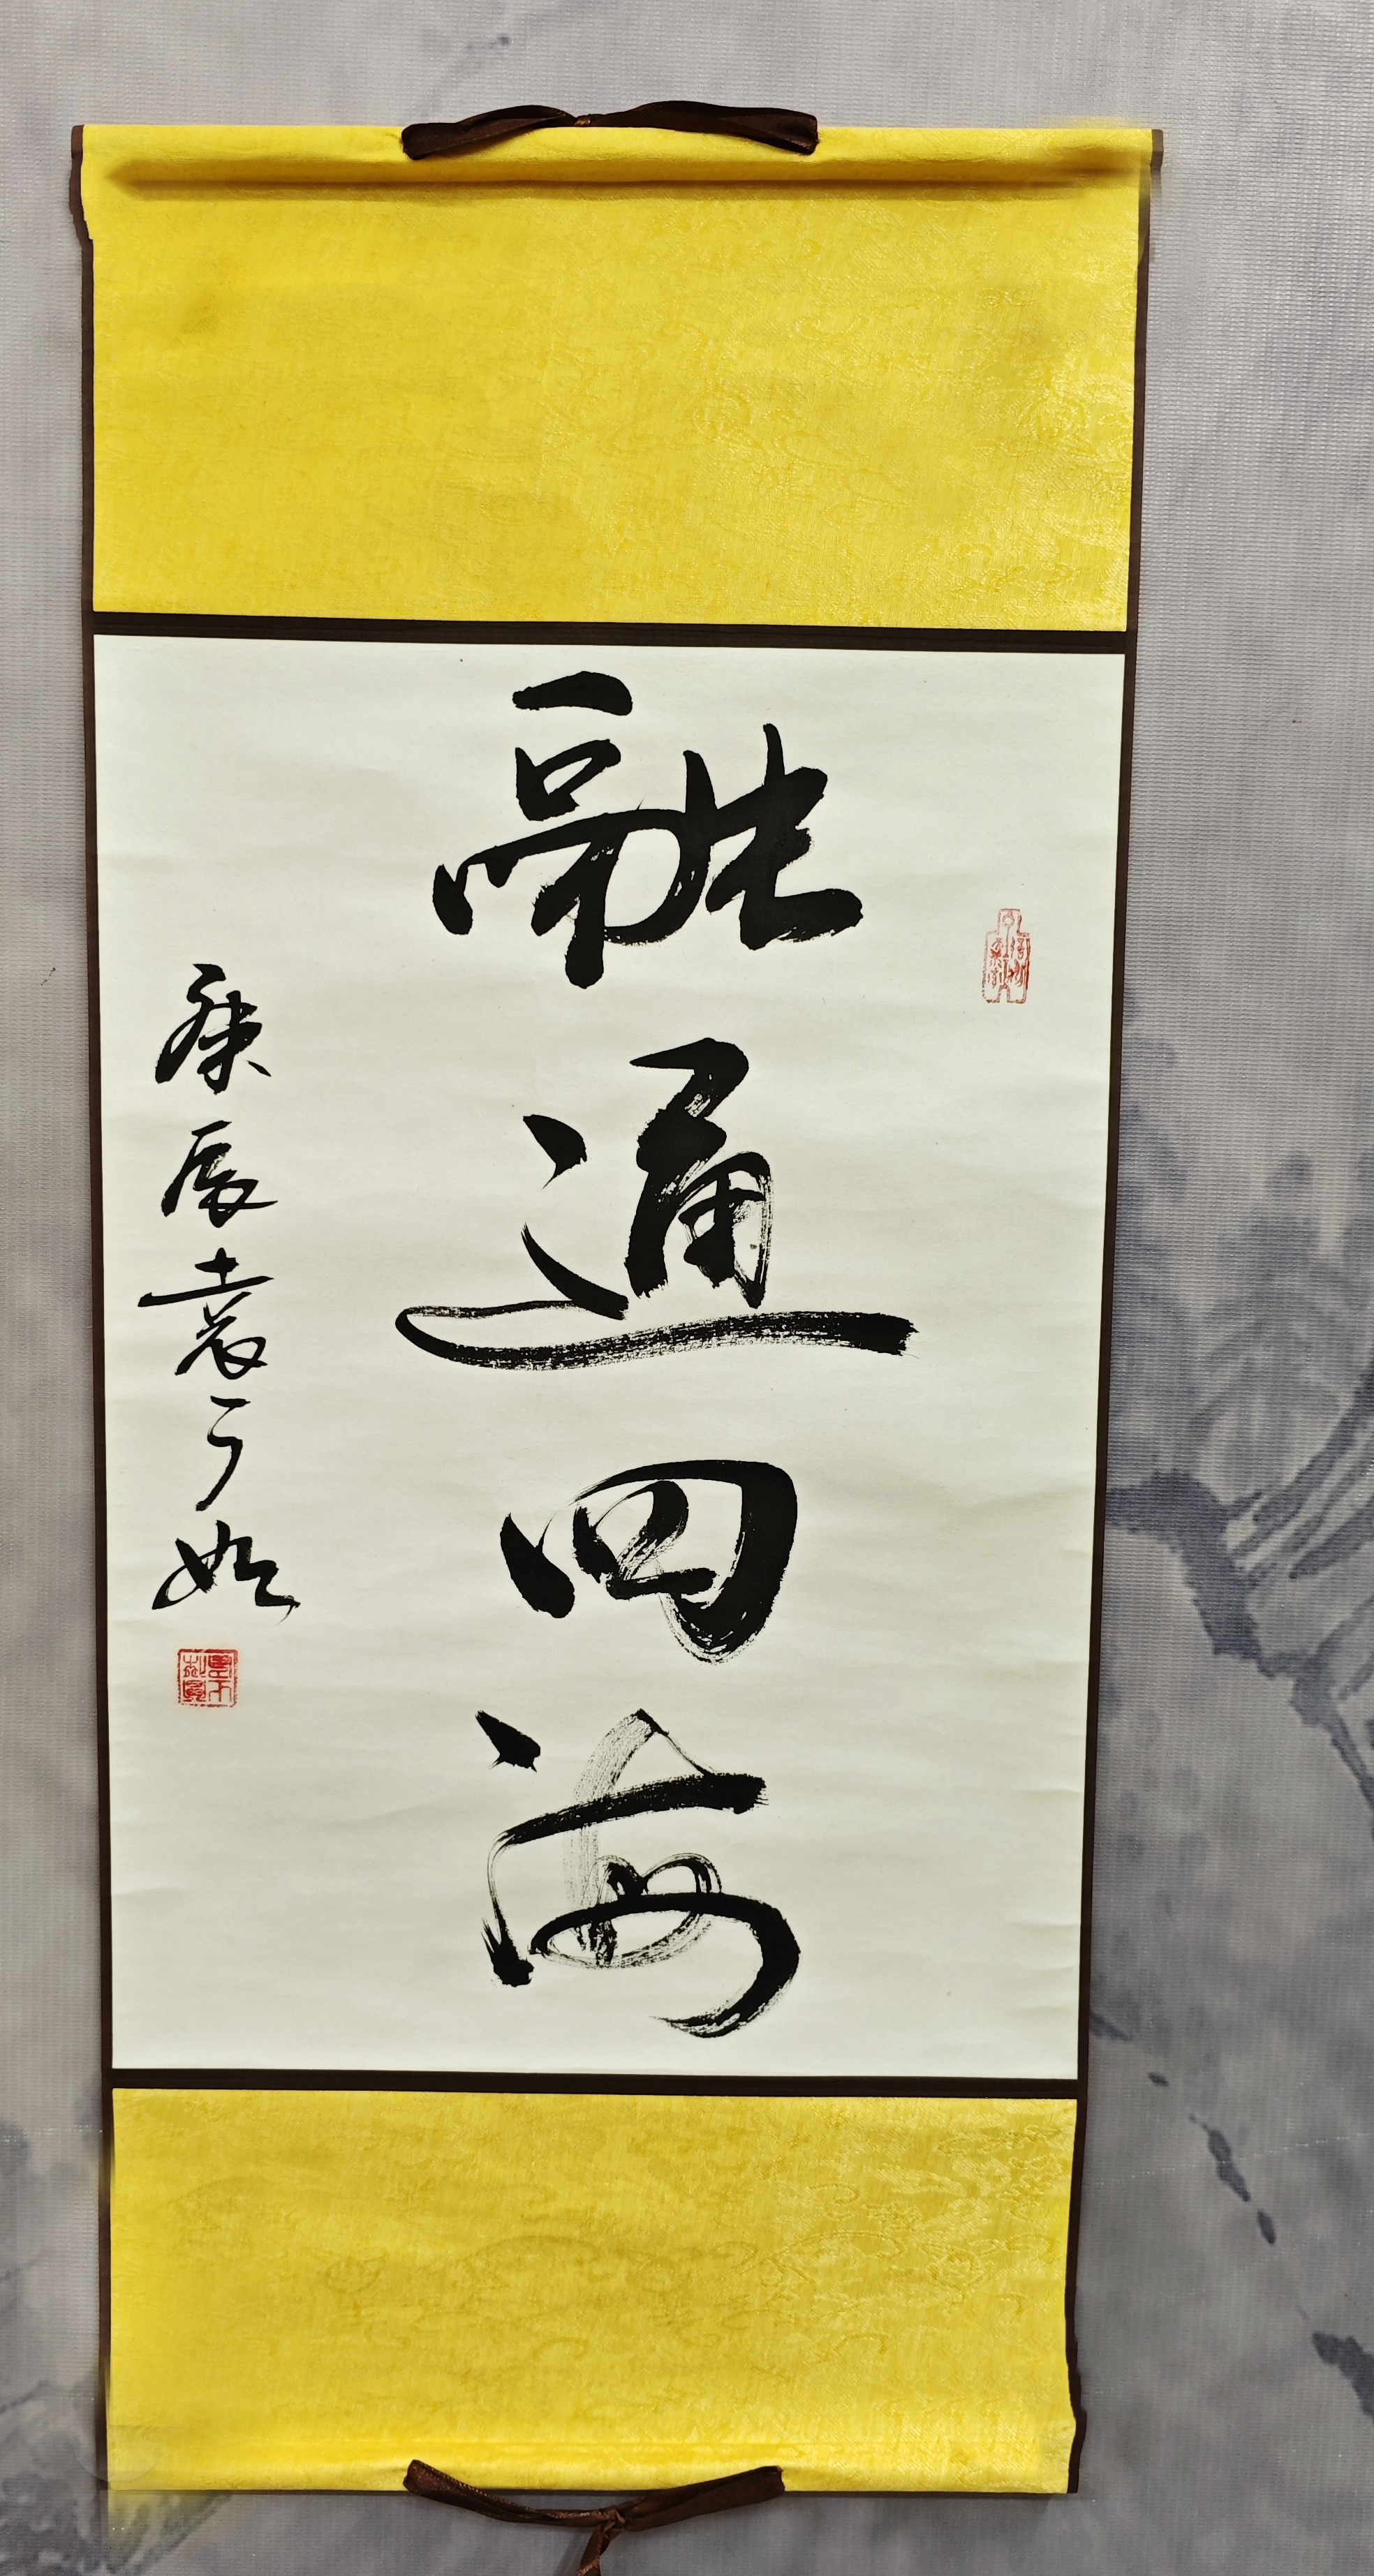 融通四海
庚辰袁了如